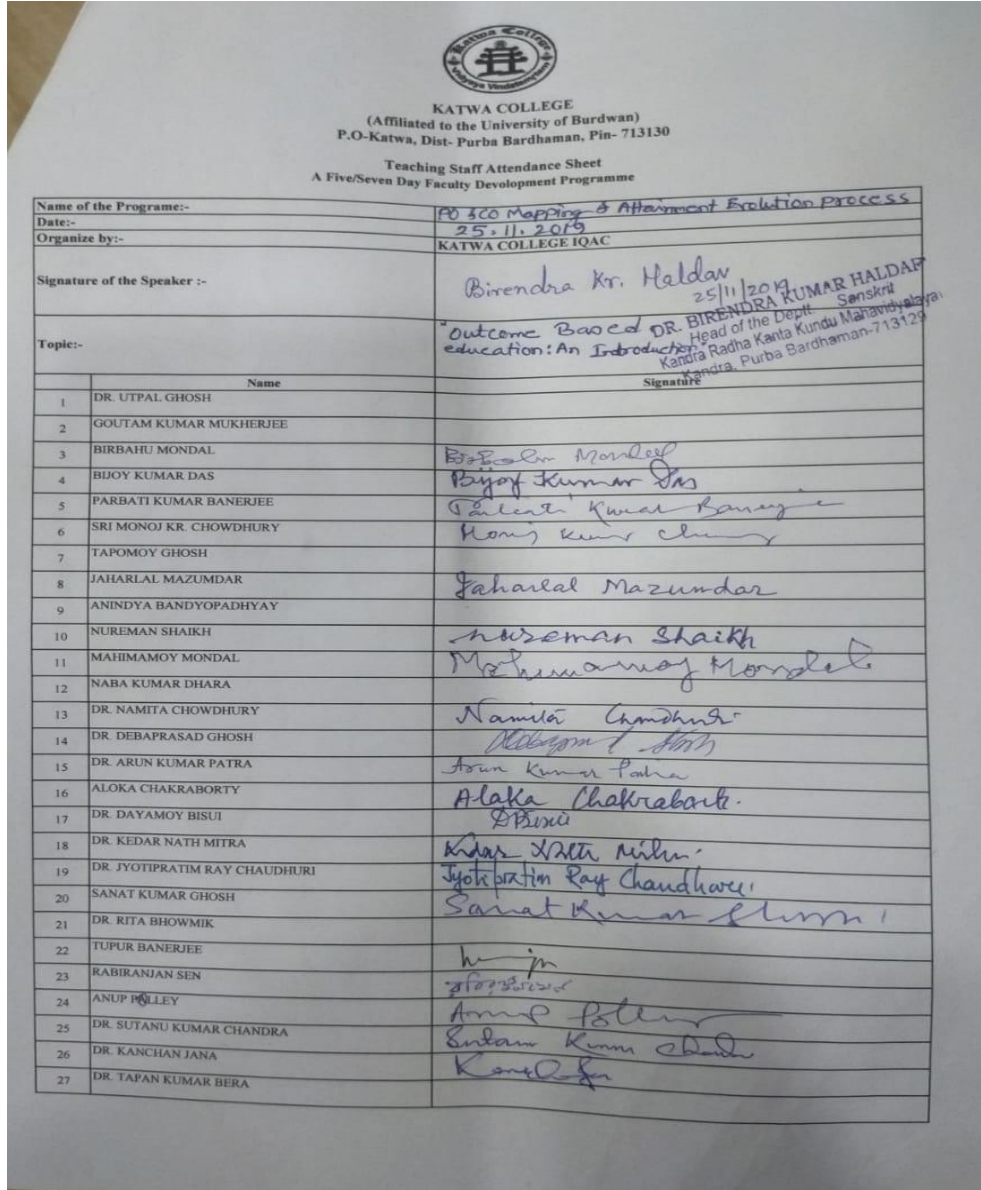 Katwa College
Vidyaya Vindatemrytam
KATWA COLLEGE
(Affiliated to the University of Burdwan)
P.O-Katwa, Dist- Purba Bardhaman, Pin- 713130
Teaching Staff Attendance Sheet
A Five/Seven Day Faculty Devolopment Programme
Name of the Programe:- PO & CO Mapping & Attainment Evolution Process
Date:- 25.11.2019
Organize by:- KATWA COLLEGE IQAC
Signature of the Speaker :- Birendra Kr. Haldar
25/11/2019
DR. BIRENDRA KUMAR HALDAR
Head of the Deptt. Sanskrit
Kandra Radha Kanta Kundu Mahavidyalaya
Kandra, Purba Bardhaman-713129
Topic:- "Outcome Based
education: An Introduction"
Name Signature
1 DR. UTPAL GHOSH
2 GOUTAM KUMAR MUKHERJEE
3 BIRBAHU MONDAL Mondal
4 BIJOY KUMAR DAS Bijoy Kumar Das
5 PARBATI KUMAR BANERJEE Parbati Kumar Banerjee
6 SRI MONOJ KR. CHOWDHURY Monoj Kumar
7 TAPOMOY GHOSH
8 JAHARLAL MAZUMDAR Jaharlal Mazumdar
9 ANINDYA BANDYOPADHYAY
10 NUREMAN SHAIKH Nureman Shaikh
11 MAHIMAMOY MONDAL Mahimamoy Mondal
12 NABA KUMAR DHARA
13 DR. NAMITA CHOWDHURY Namita Chowdhury
14 DR. DEBAPRASAD GHOSH
15 DR. ARUN KUMAR PATRA Arun Kumar Patra
16 ALOKA CHAKRABORTY Alaka Chakraborti.
17 DR. DAYAMOY BISUI DBisui
18 DR. KEDAR NATH MITRA Kedar Nath Mitra
19 DR. JYOTIPRATIM RAY CHAUDHURI Jyotipratim Ray Chaudhuri
20 SANAT KUMAR GHOSH Sanat Kumar Ghosh
21 DR. RITA BHOWMIK
22 TUPUR BANERJEE
23 RABIRANJAN SEN
24 ANUP POLLEY Anup Polley
25 DR. SUTANU KUMAR CHANDRA Sutanu Kumar Chandra
26 DR. KANCHAN JANA
27 DR. TAPAN KUMAR BERA